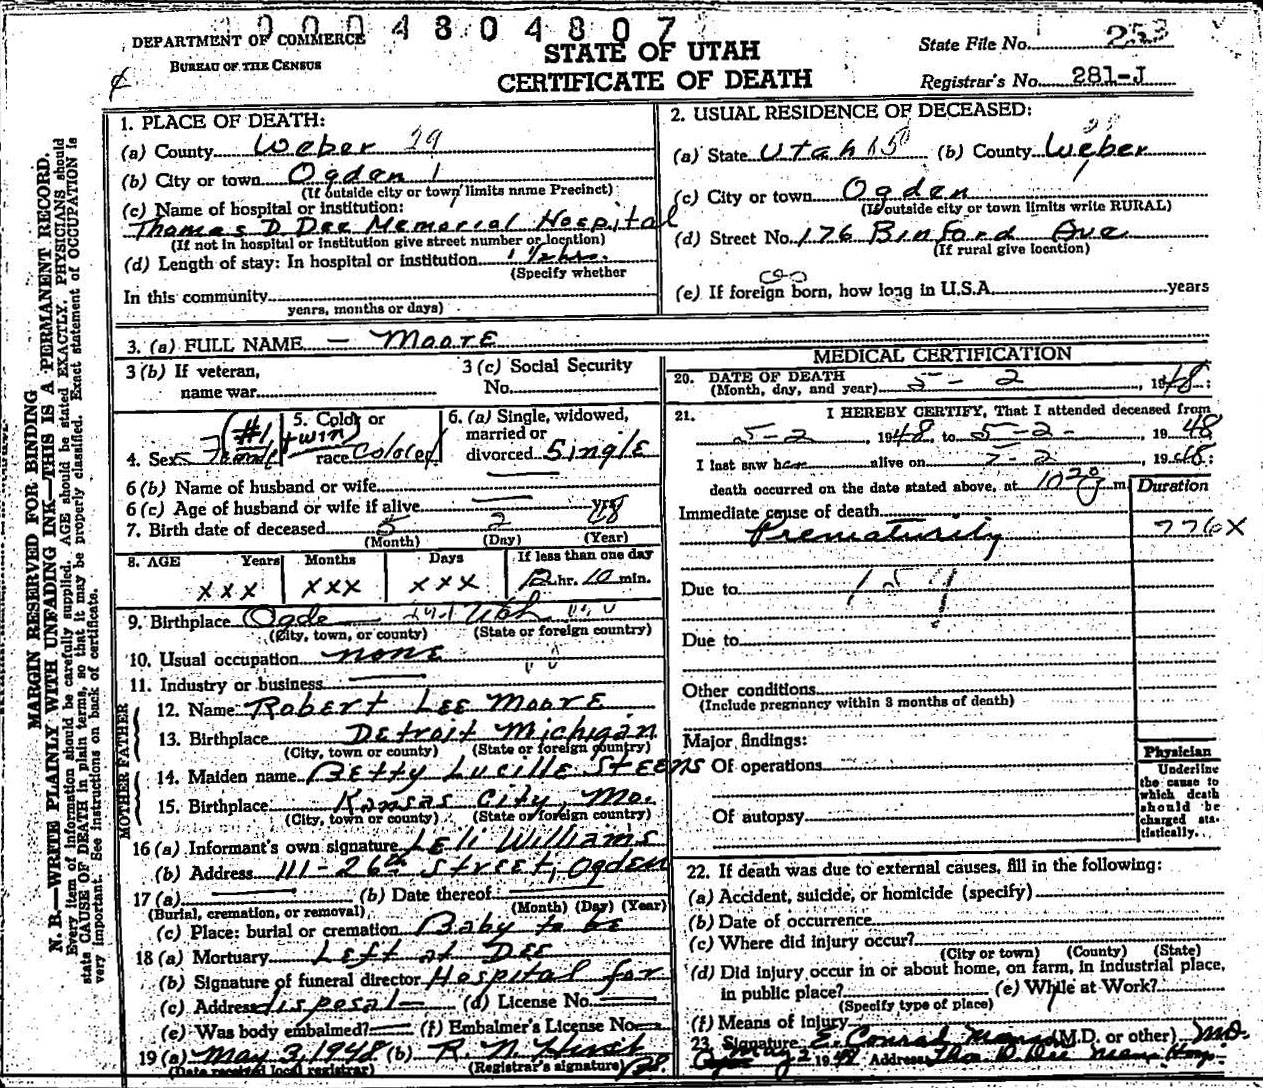 0004804807
DEPARTMENT OF COMMERCE
BUREAU OF THE CENSUS
STATE OF UTAH
CERTIFICATE OF DEATH
State File No. 253
Registrar's No. 281-J
MARGIN RESERVED FOR BINDING
N. B.—WRITE PLAINLY WITH UNFADING INK—THIS IS A PERMANENT RECORD.
Every item of information should be carefully supplied. AGE should be stated EXACTLY. PHYSICIANS should
state CAUSE OF DEATH in plain terms, so that it may be properly classified. Exact statement of OCCUPATION is
very important. See instructions on back of certificate.
1. PLACE OF DEATH:
(a) County Weber 29
(b) City or town Ogden 1
(If outside city or town limits name Precinct)
(c) Name of hospital or institution:
Thomas D Dee Memorial Hospital
(If not in hospital or institution give street number or location)
(d) Length of stay: In hospital or institution 1 1/2 hrs.
(Specify whether
In this community
years, months or days)
2. USUAL RESIDENCE OF DECEASED:
(a) State Utah (b) County Weber
(c) City or town Ogden
(If outside city or town limits write RURAL)
(d) Street No. 176 Binford Ave
(If rural give location)
(e) If foreign born, how long in U.S.A. years
3. (a) FULL NAME — Moore
3 (b) If veteran,
name war
3 (c) Social Security
No.
4. Sex Female (#1 twin)
5. Color or
race Colored
6. (a) Single, widowed,
married or
divorced Single
6 (b) Name of husband or wife
6 (c) Age of husband or wife if alive
7. Birth date of deceased 5 2 48
(Month) (Day) (Year)
8. AGE Years Months Days If less than one day
xxx xxx xxx hr. 10 min.
9. Birthplace Ogden Utah
(City, town, or county) (State or foreign country)
10. Usual occupation none
11. Industry or business
FATHER
12. Name Robert Lee Moore
13. Birthplace Detroit Michigan
(City, town or county) (State or foreign country)
MOTHER
14. Maiden name Betty Lucille Steens
15. Birthplace Kansas City, Mo.
(City, town or county) (State or foreign country)
16 (a) Informant's own signature Leli Williams
(b) Address 111-26th Street, Ogden
17 (a) (b) Date thereof
(Burial, cremation, or removal) (Month) (Day) (Year)
(c) Place: burial or cremation Baby to be
18 (a) Mortuary Left at Dee
(b) Signature of funeral director Hospital for
(c) Address disposal— (d) License No.
(e) Was body embalmed? (f) Embalmer's License No.
19 (a) May 3, 1948 (b) R. N. Hirst
(Date received local registrar) (Registrar's signature)
MEDICAL CERTIFICATION
20. DATE OF DEATH
(Month, day, and year) 5 - 2, 1948;
21. I HEREBY CERTIFY, That I attended deceased from
5-2, 1948, to 5-2-, 1948
I last saw her alive on 5-2, 1948;
death occurred on the date stated above, at 10 20 m
Duration
Immediate cause of death
Prematurity 776X
Due to 159
Due to
Other conditions
(Include pregnancy within 3 months of death)
Major findings:
Of operations
Of autopsy
Physician
Underline
the cause to
which death
should be
charged sta-
tistically.
22. If death was due to external causes, fill in the following:
(a) Accident, suicide, or homicide (specify)
(b) Date of occurrence
(c) Where did injury occur?
(City or town) (County) (State)
(d) Did injury occur in or about home, on farm, in industrial place,
in public place? (e) While at Work?
(Specify type of place)
(f) Means of injury
23 Signature E. Conrad (M.D. or other) MD.
May 2 1948 Address Thos D Dee Mem Hosp.